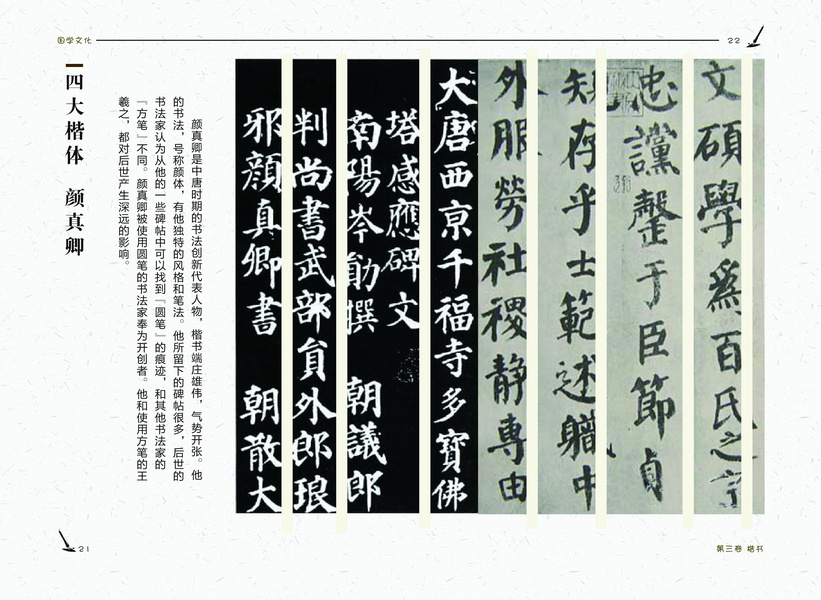 国学文化
22
四大楷体 颜真卿
颜真卿是中唐时期的书法创新代表人物，楷书端庄雄伟，气势开张。他
的书法，号称颜体，有他独特的风格和笔法。他所留下的碑帖很多，后世的
书法家认为从他的一些碑帖中可以找到「圆笔」的痕迹，和其他书法家的
「方笔」不同。颜真卿被使用圆笔的书法家奉为开创者。他和使用方笔的王
羲之，都对后世产生深远的影响。
文碩學爲百氏之宗
忠讜罄于臣節貞
規存乎士範述職中
外服勞社稷靜專由
大唐西京千福寺多寶佛
塔感應碑文
南陽岑勛撰 朝議郎
判尚書武部員外郎琅
邪顏真卿書 朝散大
21
第三卷 楷书